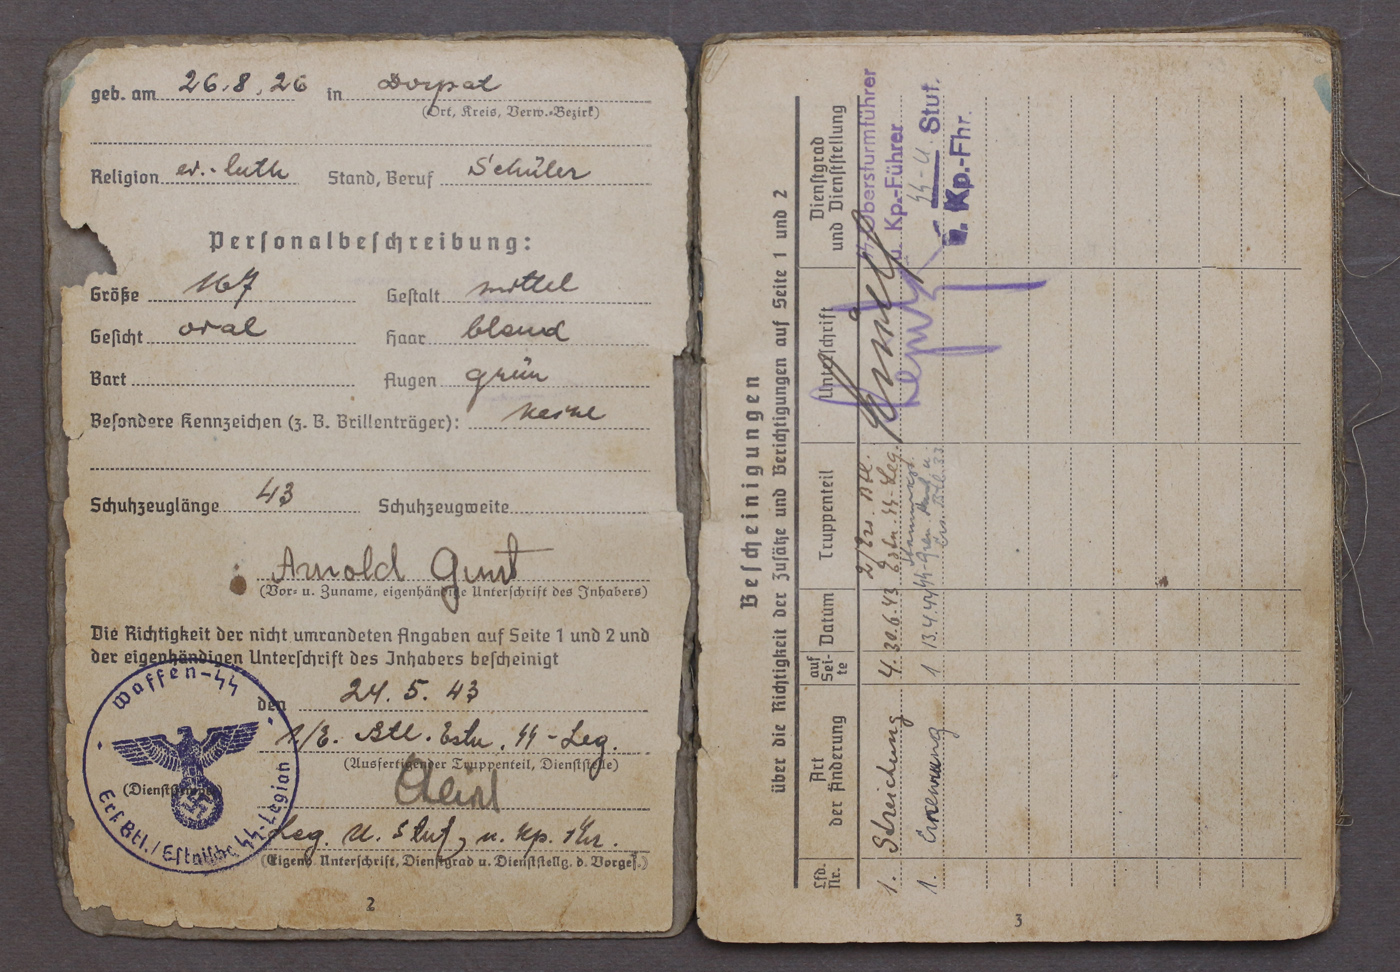 geb. am 26.8.26 in Dorpat
(Ort, Kreis, Verw.-Bezirk)
Religion ev.-luth Stand, Beruf Schüler
Personalbeschreibung:
Größe 167 Gestalt mittel
Gesicht oval Haar blond
Bart Augen grün
Besondere Kennzeichen (z. B. Brillenträger): keine
Schuhzeuglänge 43 Schuhzeugweite
Arnold
(Vor- u. Zuname, eigenhändige Unterschrift des Inhabers)
Die Richtigkeit der nicht umrandeten Angaben auf Seite 1 und 2 und
der eigenhändigen Unterschrift des Inhabers bescheinigt
den 24. 5. 43
1/E. Btl. Estn. SS-Leg.
(Ausfertigender Truppenteil, Dienststelle)
(Dienststempel)
Leg. U. Stuf, u. Kp. Fhr.
(Eigenh. Unterschrift, Dienstgrad u. Dienststellg. d. Vorges.)
Waffen-SS
Ers. Btl./Estnische SS-Legion
2
Bescheinigungen
über die Richtigkeit der Zusätze und Berichtigungen auf Seite 1 und 2
Lfd. Nr. Art der Änderung auf Seite Datum Truppenteil Unterschrift Dienstgrad und Dienststellung
1. Streichung 4. 30.6.43 2/Ers. Btl. Estn. SS-Leg. SS Obersturmführer u. Kp.-Führer
1. Ernennung 1 13.4.44 SS-Gren. u. Ers. Btl. SS-U Stuf. u. Kp.-Fhr.
3